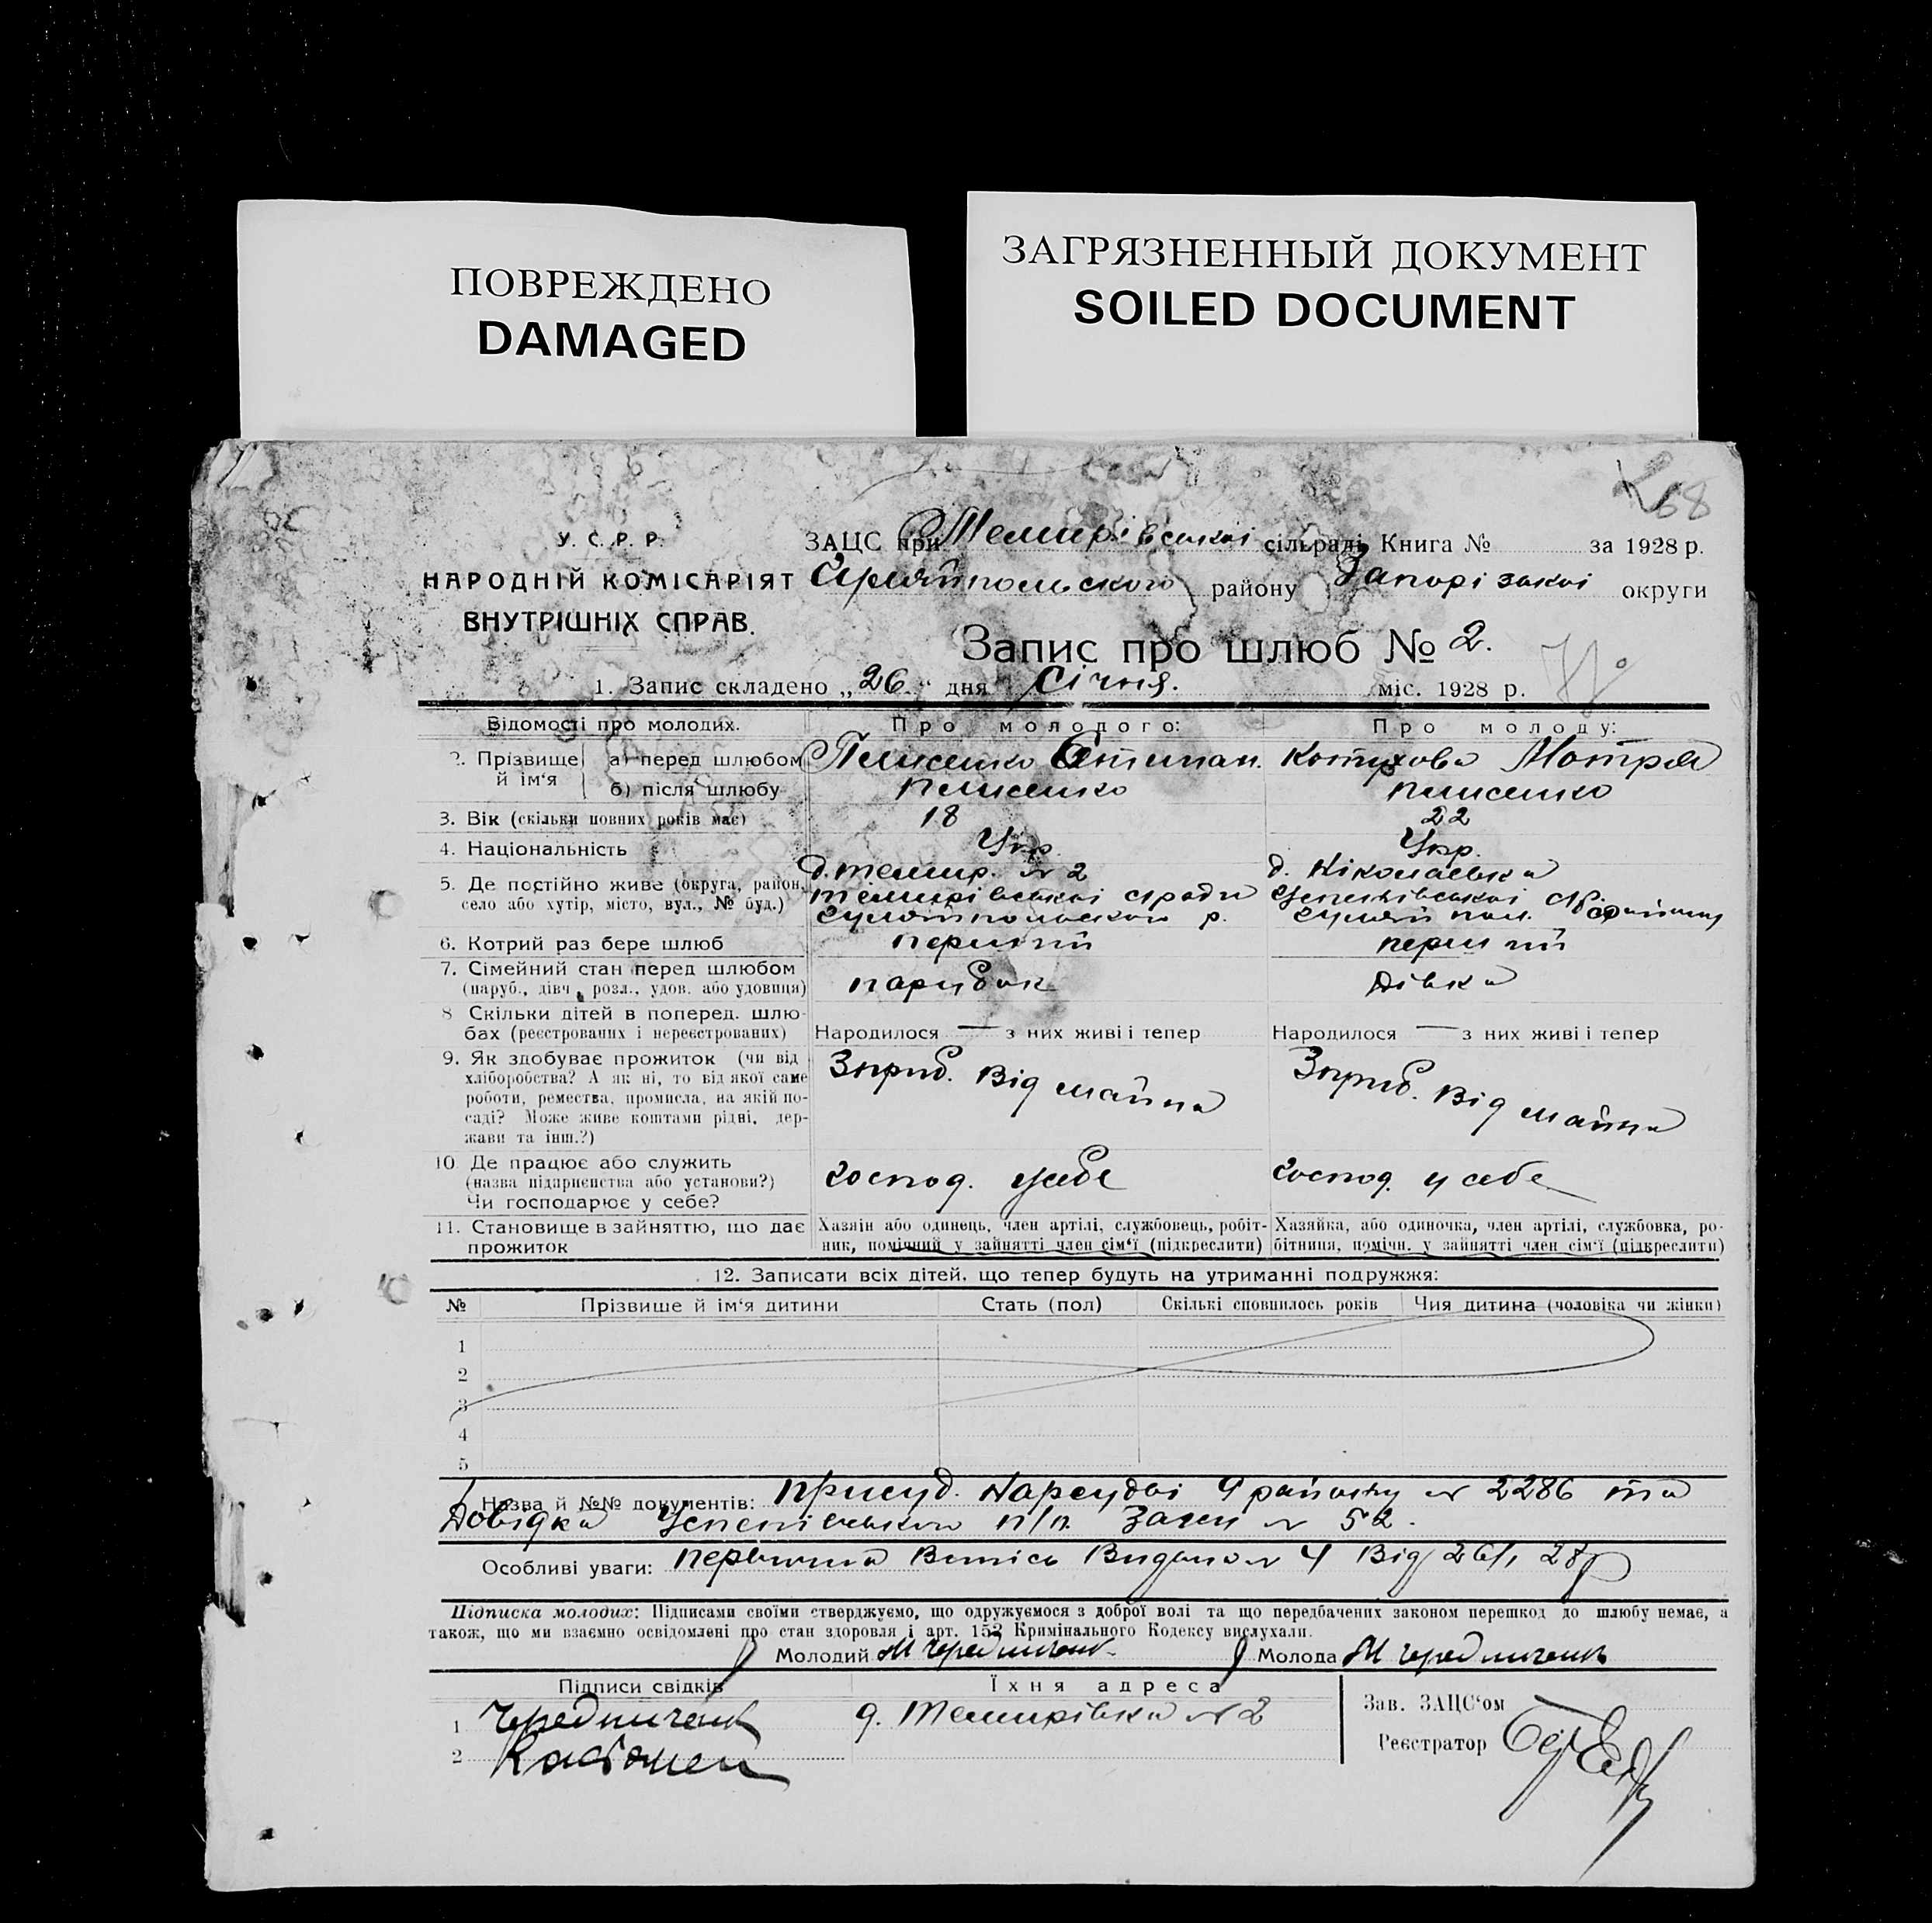 ПОВРЕЖДЕНО
DAMAGED
ЗАГРЯЗНЕННЫЙ ДОКУМЕНТ
SOILED DOCUMENT
68
У. С. Р. Р.
НАРОДНІЙ КОМІСАРІЯТ
ВНУТРІШНІХ СПРАВ.
ЗАЦС при Темирівської сільраді Книга № за 1928 р.
району Запорізької округи
Запис про шлюб № 2.
1. Запис складено „26“ дня Січня. міс. 1928 р.
Відомості про молодих. Про молодого: Про молоду:
2. Прізвище й ім‘я а) перед шлюбом Мотря
б) після шлюбу
3. Вік (скільки повних років має) 18 22
4. Національність Укр. Укр.
5. Де постійно живе (округа, район, село або хутір, місто, вул., № буд.)
д. Темир. № 2 д. Ніколаевка
Темирівської сради
6. Котрий раз бере шлюб перший перший
7. Сімейний стан перед шлюбом парубок Дівка
(паруб., дівч., розл., удов. або удовиця)
8 Скільки дітей в поперед. шлю-
бах (реєстрованих і нереєстрованих) Народилося — з них живі і тепер Народилося — з них живі і тепер
9. Як здобуває прожиток (чи від
хліборобства? А як ні, то від якої саме
роботи, ремества, промисла, на якій по-
саді? Може живе коштами рідні, дер-
жави та інш.?)
від майна від майна
10. Де працює або служить
(назва підприємства або установи?)
Чи господарює у себе?
господ. у себе господ. у себе
11. Становище в зайняттю, що дає
прожиток
Хазяїн або одинець, член артілі, службовець, робіт-
ник, помічний у зайнятті член сім‘ї (підкреслити)
Хазяйка, або одиночка, член артілі, службовка, ро-
бітниця, помічн. у зайнятті член сім‘ї (підкреслити)
12. Записати всіх дітей, що тепер будуть на утриманні подружжя:
№ Прізвище й ім‘я дитини Стать (пол) Скількі сповнилось років Чия дитина (чоловіка чи жінки)
1
2
3
4
5
Назва й №№ документів: Присуд. Нарсудві 9 району № 2286 та
Довідка № 52.
Особливі уваги: Первична Випись Видана № 4 Від 26/1 28р
Підписка молодих: Підписами своїми стверджуємо, що одружуємося з доброї волі та що передбачених законом перешкод до шлюбу немає, а
також, що ми взаємно освідомлені про стан здоровля і арт. 152 Кримінального Кодексу вислухали.
Молодий М Чередниченк Молода М Чередниченк
Підписи свідків Їхня адреса
1 Чередниченк д. Темирівка № 2
2
Зав. ЗАЦС‘ом
Реєстратор